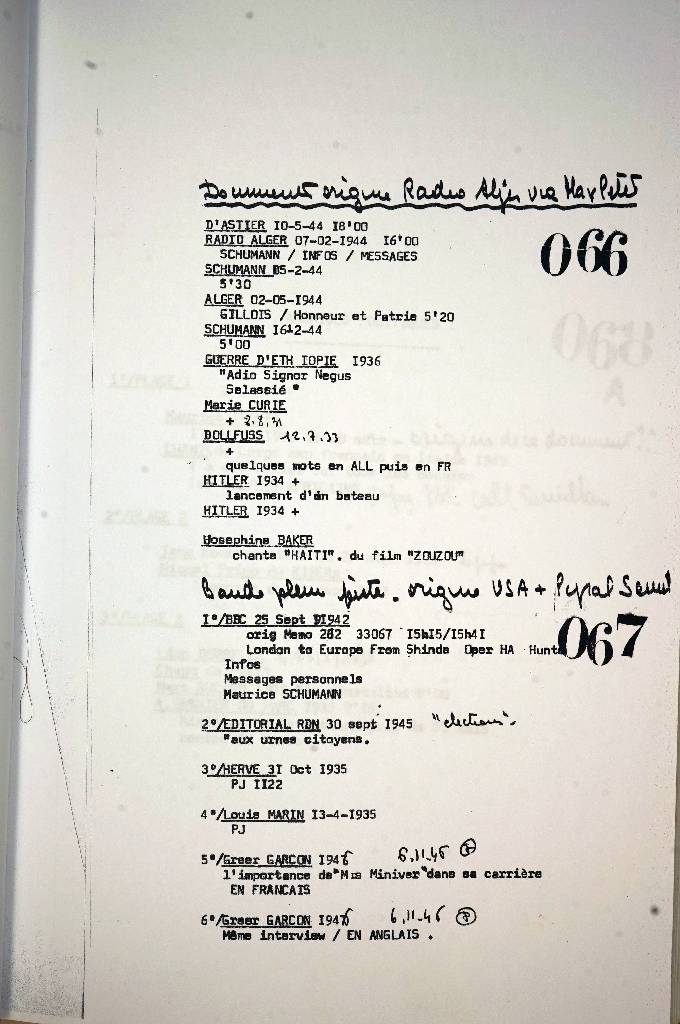 Document origine Radio Alger via Max Petit
066
D'ASTIER I0-5-44 I8'00
RADIO ALGER 07-02-I944 I6'00
SCHUMANN / INFOS / MESSAGES
SCHUMANN 05-2-44
5'30
ALGER 02-05-I944
GILLOIS / Honneur et Patrie 5'20
SCHUMANN I6-2-44
5'00
GUERRE D'ETH IOPIE I936
"Adio Signor Negus
Selassié "
Marie CURIE
+
DOLLFUSS 12.7.33
+
quelques mots en ALL puis en FR
HITLER I934 +
lancement d'un bateau
HITLER I934 +
Josephine BAKER
chante "HAITI". du film "ZOUZOU"
Bande pleine piste. origine USA +
067
I°/BBC 25 Sept I942
orig Memo 262 33067 I5hI5/I5h4I
London to Europe From Shinds Oper HA Hunt
Infos
Messages personnels
Maurice SCHUMANN
2°/EDITORIAL RDN 30 sept I945 "elections".
"aux urnes citoyens.
3°/HERVE 3I Oct I935
PJ II22
4°/Louis MARIN I3-4-I935
PJ
5°/Greer GARCON I946 6.11.46 P
l'importance de "Mrs Miniver" dans sa carrière
EN FRANCAIS
6°/Greer GARCON I946 6.11.46 P
Même interview / EN ANGLAIS .
068
A